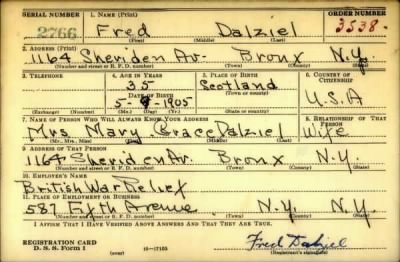 SERIAL NUMBER 1. NAME (Print) ORDER NUMBER
2766 Fred Dalziel 3538-
(First) (Middle) (Last)
2. ADDRESS (Print)
1164 Sheriden Av. Bronx N.Y.
(Number and street or R. F. D. number) (Town) (County) (State)
3. TELEPHONE 4. AGE IN YEARS 5. PLACE OF BIRTH 6. COUNTRY OF CITIZENSHIP
35 Scotland
DATE OF BIRTH (Town or county)
5- 1905 U.S.A
(Exchange) (Number) (Mo.) (Day) (Yr.) (State or country)
7. NAME OF PERSON WHO WILL ALWAYS KNOW YOUR ADDRESS 8. RELATIONSHIP OF THAT PERSON
Mrs Mary Grace Dalziel Wife
(Mr., Mrs., Miss) (First) (Middle) (Last)
9. ADDRESS OF THAT PERSON
1164 Sheriden Av. Bronx N.Y.
(Number and street or R. F. D. number) (Town) (County) (State)
10. EMPLOYER'S NAME
British War Relief
11. PLACE OF EMPLOYMENT OR BUSINESS
587 Fifth Avenue N.Y. N.Y.
(Number and street or R. F. D. number) (Town) (County) (State)
I AFFIRM THAT I HAVE VERIFIED ABOVE ANSWERS AND THAT THEY ARE TRUE.
REGISTRATION CARD
D. S. S. Form 1 (over) 16-17105 Fred Dalziel
(Registrant's signature)